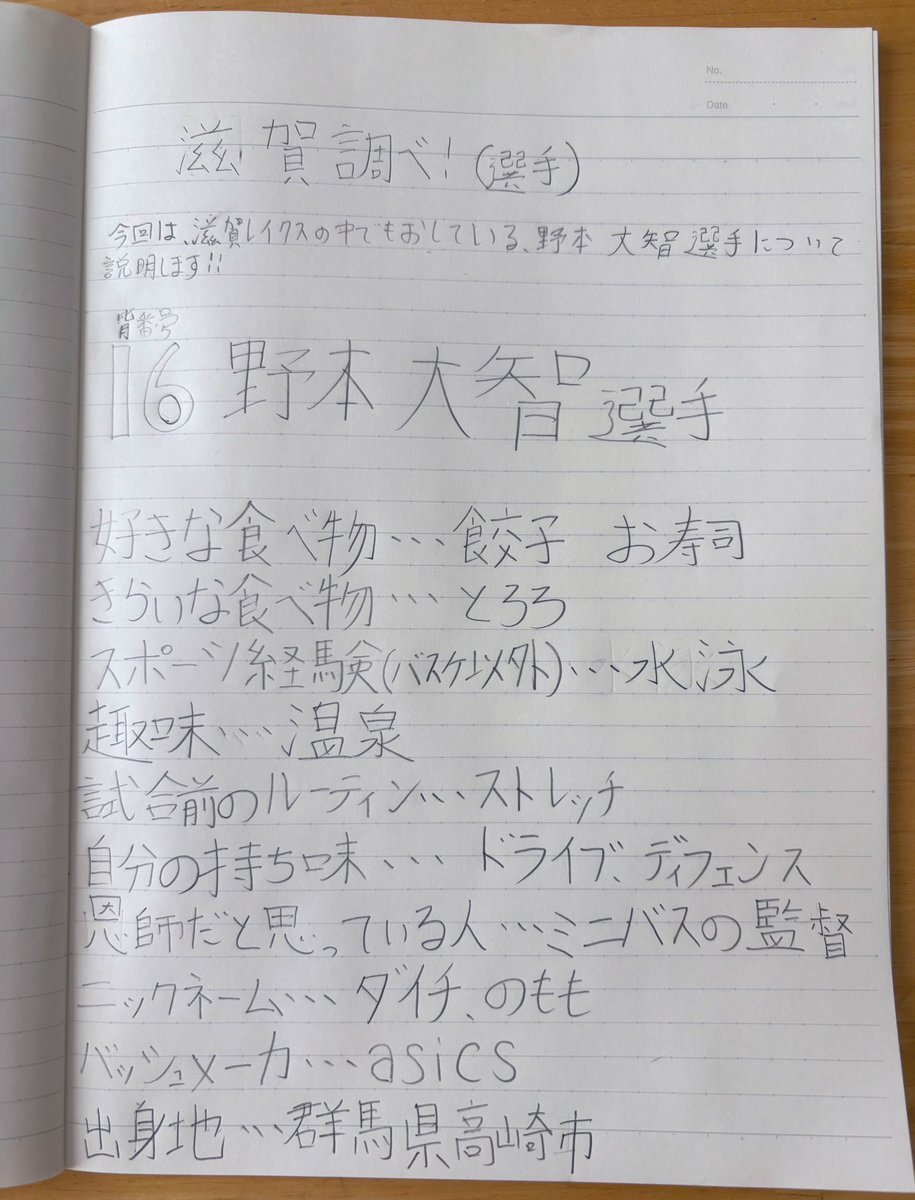 No.
Date
滋賀調べ!(選手)
今回は、滋賀レイクスの中でもおしている、野本 大智選手について
説明します!!
背番号
16 野本 大智選手
好きな食べ物…餃子 お寿司
きらいな食べ物…とろろ
スポーツ経験(バスケ以外)…水泳
趣味…温泉
試合前のルーティン…ストレッチ
自分の持ち味… ドライブ、ディフェンス
恩師だと思っている人…ミニバスの監督
ニックネーム…ダイチ、のもも
バッシュメーカ…asics
出身地…群馬県高崎市